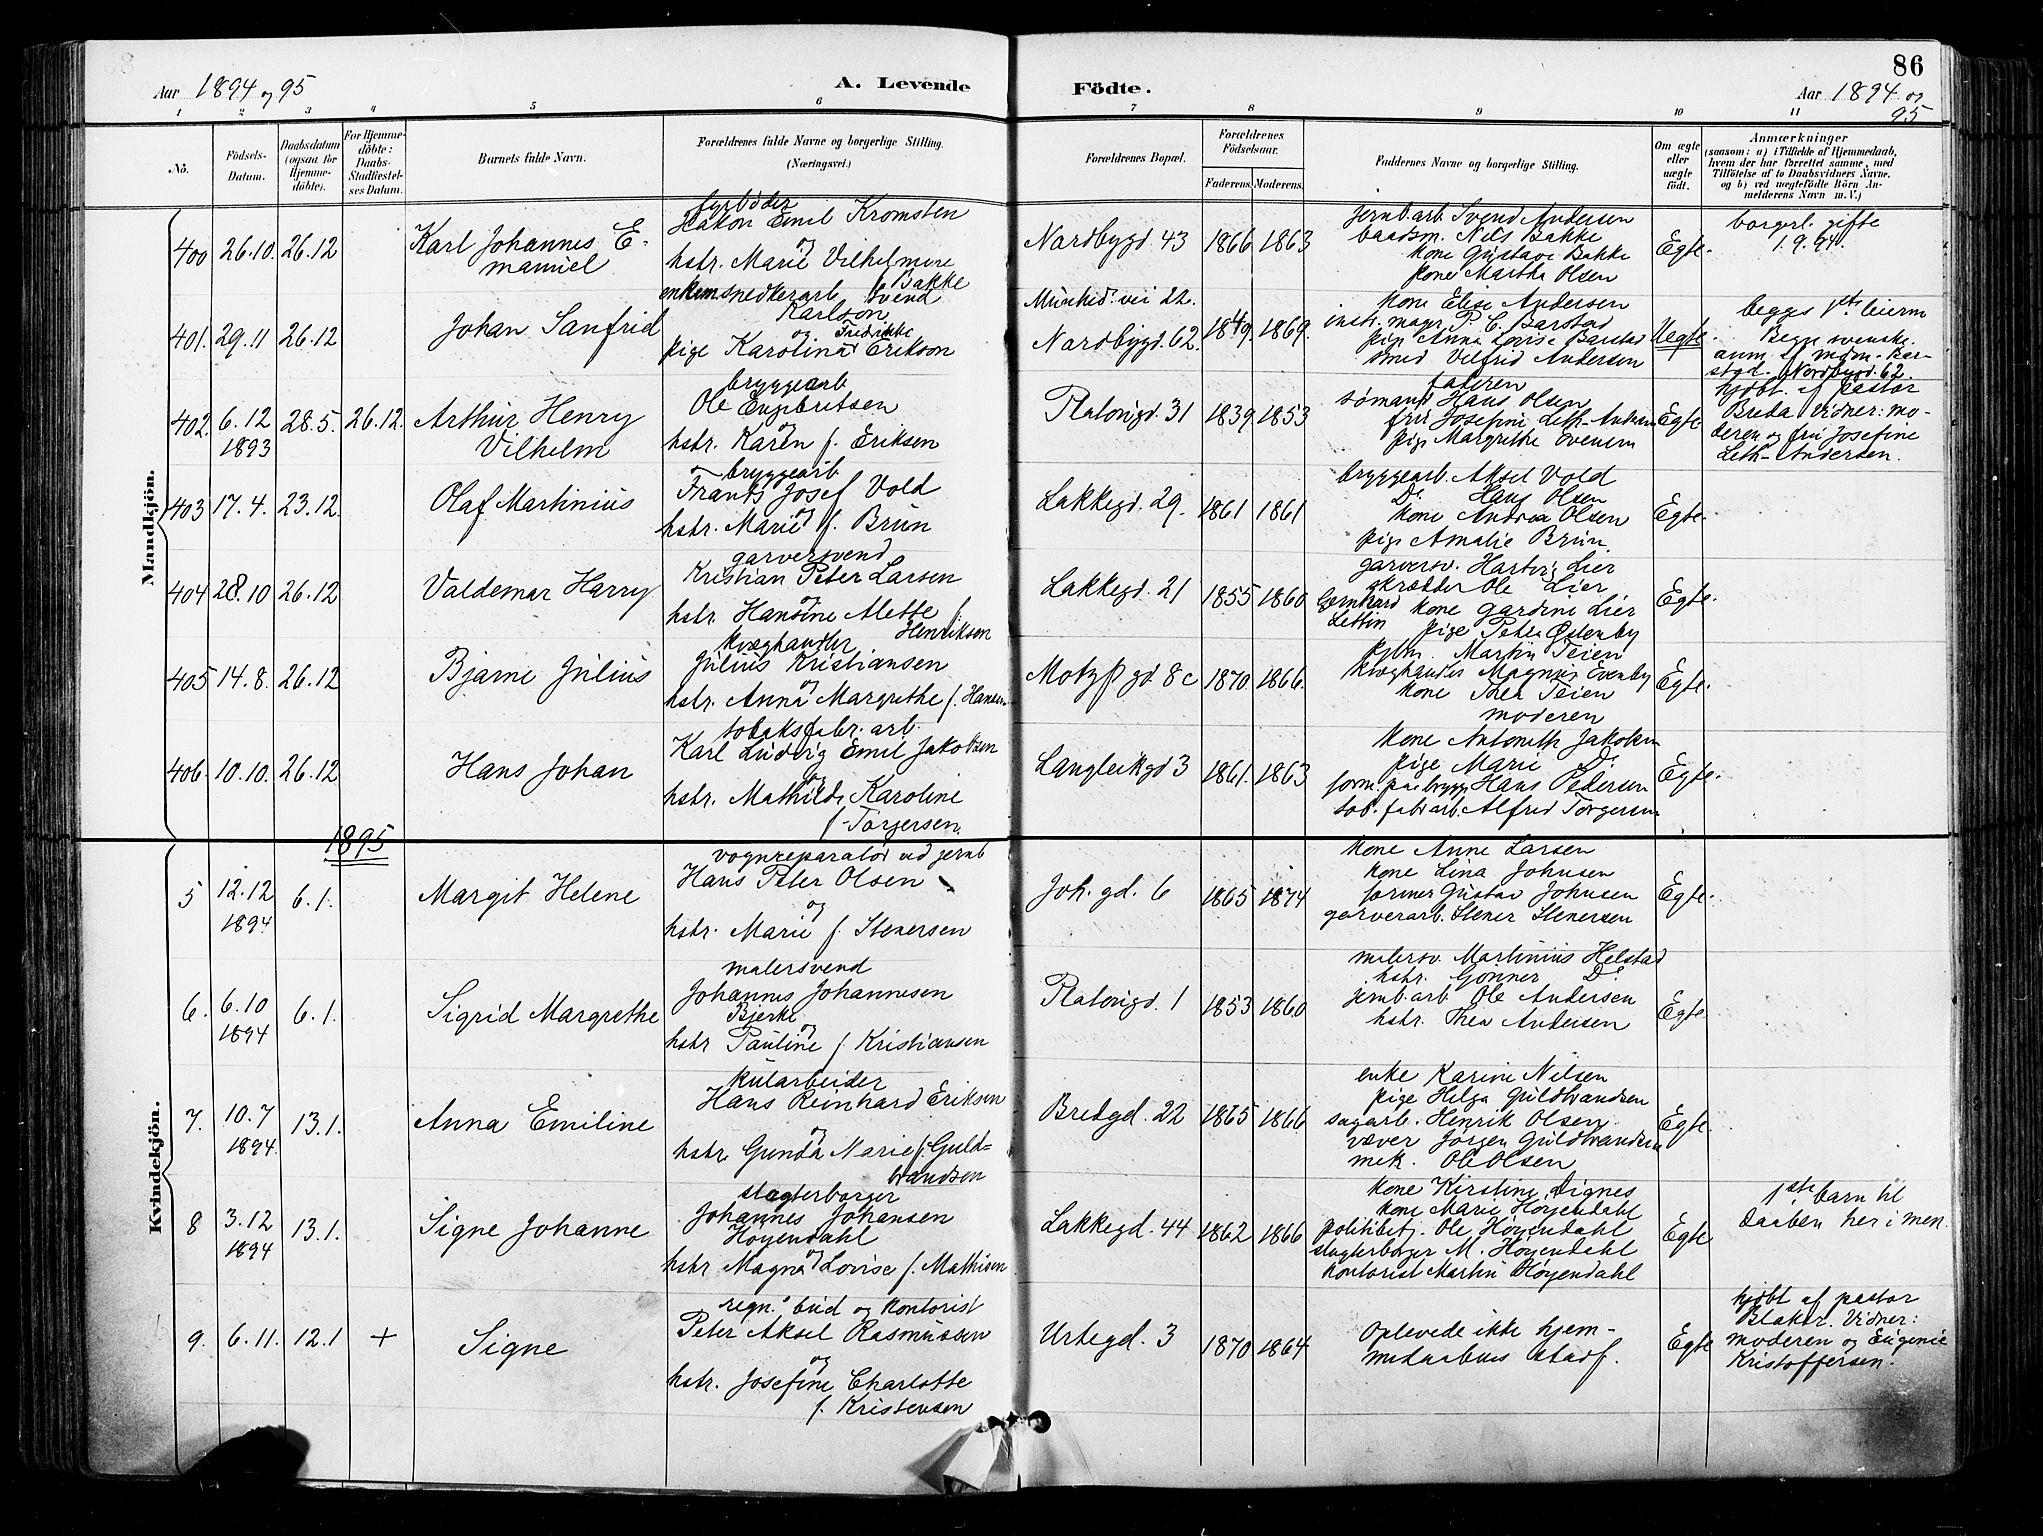 86
Aar 1894 og 95
A. Levende
Födte.
Aar 1894 og
95
1 2 3 4 5 6 7 8 9 10 11
No.
Födsels-
Datum.
Daabsdatum
(ogsaa for
Hjemme-
döbte).
For Hjemme-
döbte:
Daabs-
Stadfæstel-
ses Datum.
Barnets fulde Navn.
Forældrenes fulde Navne og borgerlige Stilling.
(Næringsvei.)
Forældrenes Bopæl.
Forældrenes
Födselsaar.
Faderens. Moderens.
Faddernes Navne og borgerlige Stilling.
Om ægte
eller
uægte
födt.
Anmærkninger
(saasom: a) i Tilfælde af Hjemmedaab,
hvem der har forrettet samme, med
Tilföielse af to Daabsvidners Navne.
og b) ved uegtefödte Börn An-
melderens Navn m. V.)
Mandkjön.
400 26.10. 26.12
Karl Johannes E-
manuel
fyrböder
Hakon Emil Kromsten
og
hstr. Marie Vilhelmine
f. Bakke
Nordbygd. 43 1866 1863
jernb.arb Svend Andersen
baadsm. Nils Bakke
kone Gustava Bakke
kone Martha Olsen
Egte.
borgerl. gifte
1.9.94.
401. 29.11 26.12
Johan Sanfrid
enkem. snedkerarb Svend
Karlson
og Fredrikke
pige Karolina Erikson
Munked. vei 22.
Nordbygd. 62. 1849. 1869.
kone Elise Andersen
instr. mager P. C. Barstad
pige Anna Lovise Barstad
smed Vilfrid Andersen
Uegte.
begges 1ste leierm
Begge svenske.
anm. af mdm. Bar-
stad. Nordbygd. 62.
402. 6.12
1893
28.5. 26.12.
Arthur Henry
Vilhelm
bryggearb
Ole Engebritsen
og
hstr. Karen f. Eriksen
Platousgd. 31 1839 1853
faderen
sömand Hans Olsen
fru Josefine Leth-Andersen
pige Margrethe Svensen
Egte
hjdbt. af pastor
Breda Vidner: mo-
deren og fru Josefine
Leth-Andersen.
403 17.4. 23.12.
Olaf Martinius
bryggearb
Frants Josef Vold
og
hstr. Marie f. Brun
Lakkegd. 29. 1861 1861
bryggearb. Aksel Vold
Do. Hans Olsen
kone Andrea Olsen
pige Amalie Brun.
Egte.
404 28.10 26.12
Valdemar Harry
garversvend
Kristian Peter Larsen
og
hstr. Hansine Alette f.
Henriksen
Lakkegd. 21 1855 1860
garversv. Lier
skrædder Ole Lier
kone Gardine Lier
pige Petra Østenby
Egte.
405 14.8. 26.12
Bjarne Julius
kvæghandler
Julius Kristiansen
og
hstr. Anna Margrethe f. Hansen
Motzf gd 8c 1870. 1866.
Martin Teien
kvæghandler Magnus Evenby
kone Thea Teien
moderen
Egte.
406. 10.10. 26.12
Hans Johan
tobaksfabr. arb.
Karl Ludvig Emil Jakobsen
og
hstr. Mathilde Karoline
f. Torgersen.
Langleikgd 3 1861. 1863
kone Antonette Jakobsen
pige Marie Do.
form. paa brygg. Hans Pedersen
tob. fabr.arb. Alfred Torgersen
Egte.
1895
Kvindekjön.
5 12.12
1894
6.1.
Margit Helene
vognreparatör ved jernb
Hans Peter Olsen
og
hstr. Marie f. Stenersen
Joh. gd. 6 1865 1874
kone Anne Larsen
kone Lina Johnsen
former Gustav Johnsen
garverarb. Stener Stenersen
Egte.
6. 6.10
1894
6.1.
Sigrid Margrethe
malersvend
Johannes Johannesen
Bjerke
og
hstr Pauline f. Kristiansen
Platousgd. 1 1853 1860
malersv. Martinius Helstad
hstr. Gonner Do.
jernb.arb Ole Andersen
hstr. Thea Andersen
Egte.
7. 10.7
1894.
13.1.
Anna Emiline
kularbeider
Hans Reinhard Eriksen
og
hstr. Gunda Marie f. Guld-
brandsen
Bredgd. 22 1865 1866
enke Karine Nilsen
pige Helga Guldbrandsen
sagarb. Henrik Olsen.
væver Jörgen Guldbrandsen
mek. Ole Olsen
Egte.
8 3.12
1894
13.1.
Signe Johanne
slagterborger
Johannes Johansen
Höyendahl
og
hstr Magna Lovise f. Mathisen
Lakkegd. 44 1862 1866
kone Kirstine Signes
kone Marie Höyendahl
politibetj. Ole Höyendahl
slagterborger M. Höyendahl
kontorist Martin Höyendahl
Egte
1ste barn til
daaben her i men.
9. 6.11. 12.1 +
Signe
regn. bud og kontorist
Peter Aksel Rasmussen
og
hstr. Josefine Charlotte
f. Kristensen
Urtegd. 3 1870 1864
Oplevede ikke hjem-
medaabens stadf.
Egte
hjdbt af pastor
Blaker. Vidner:
moderen og Eugenie
Kristoffersen.